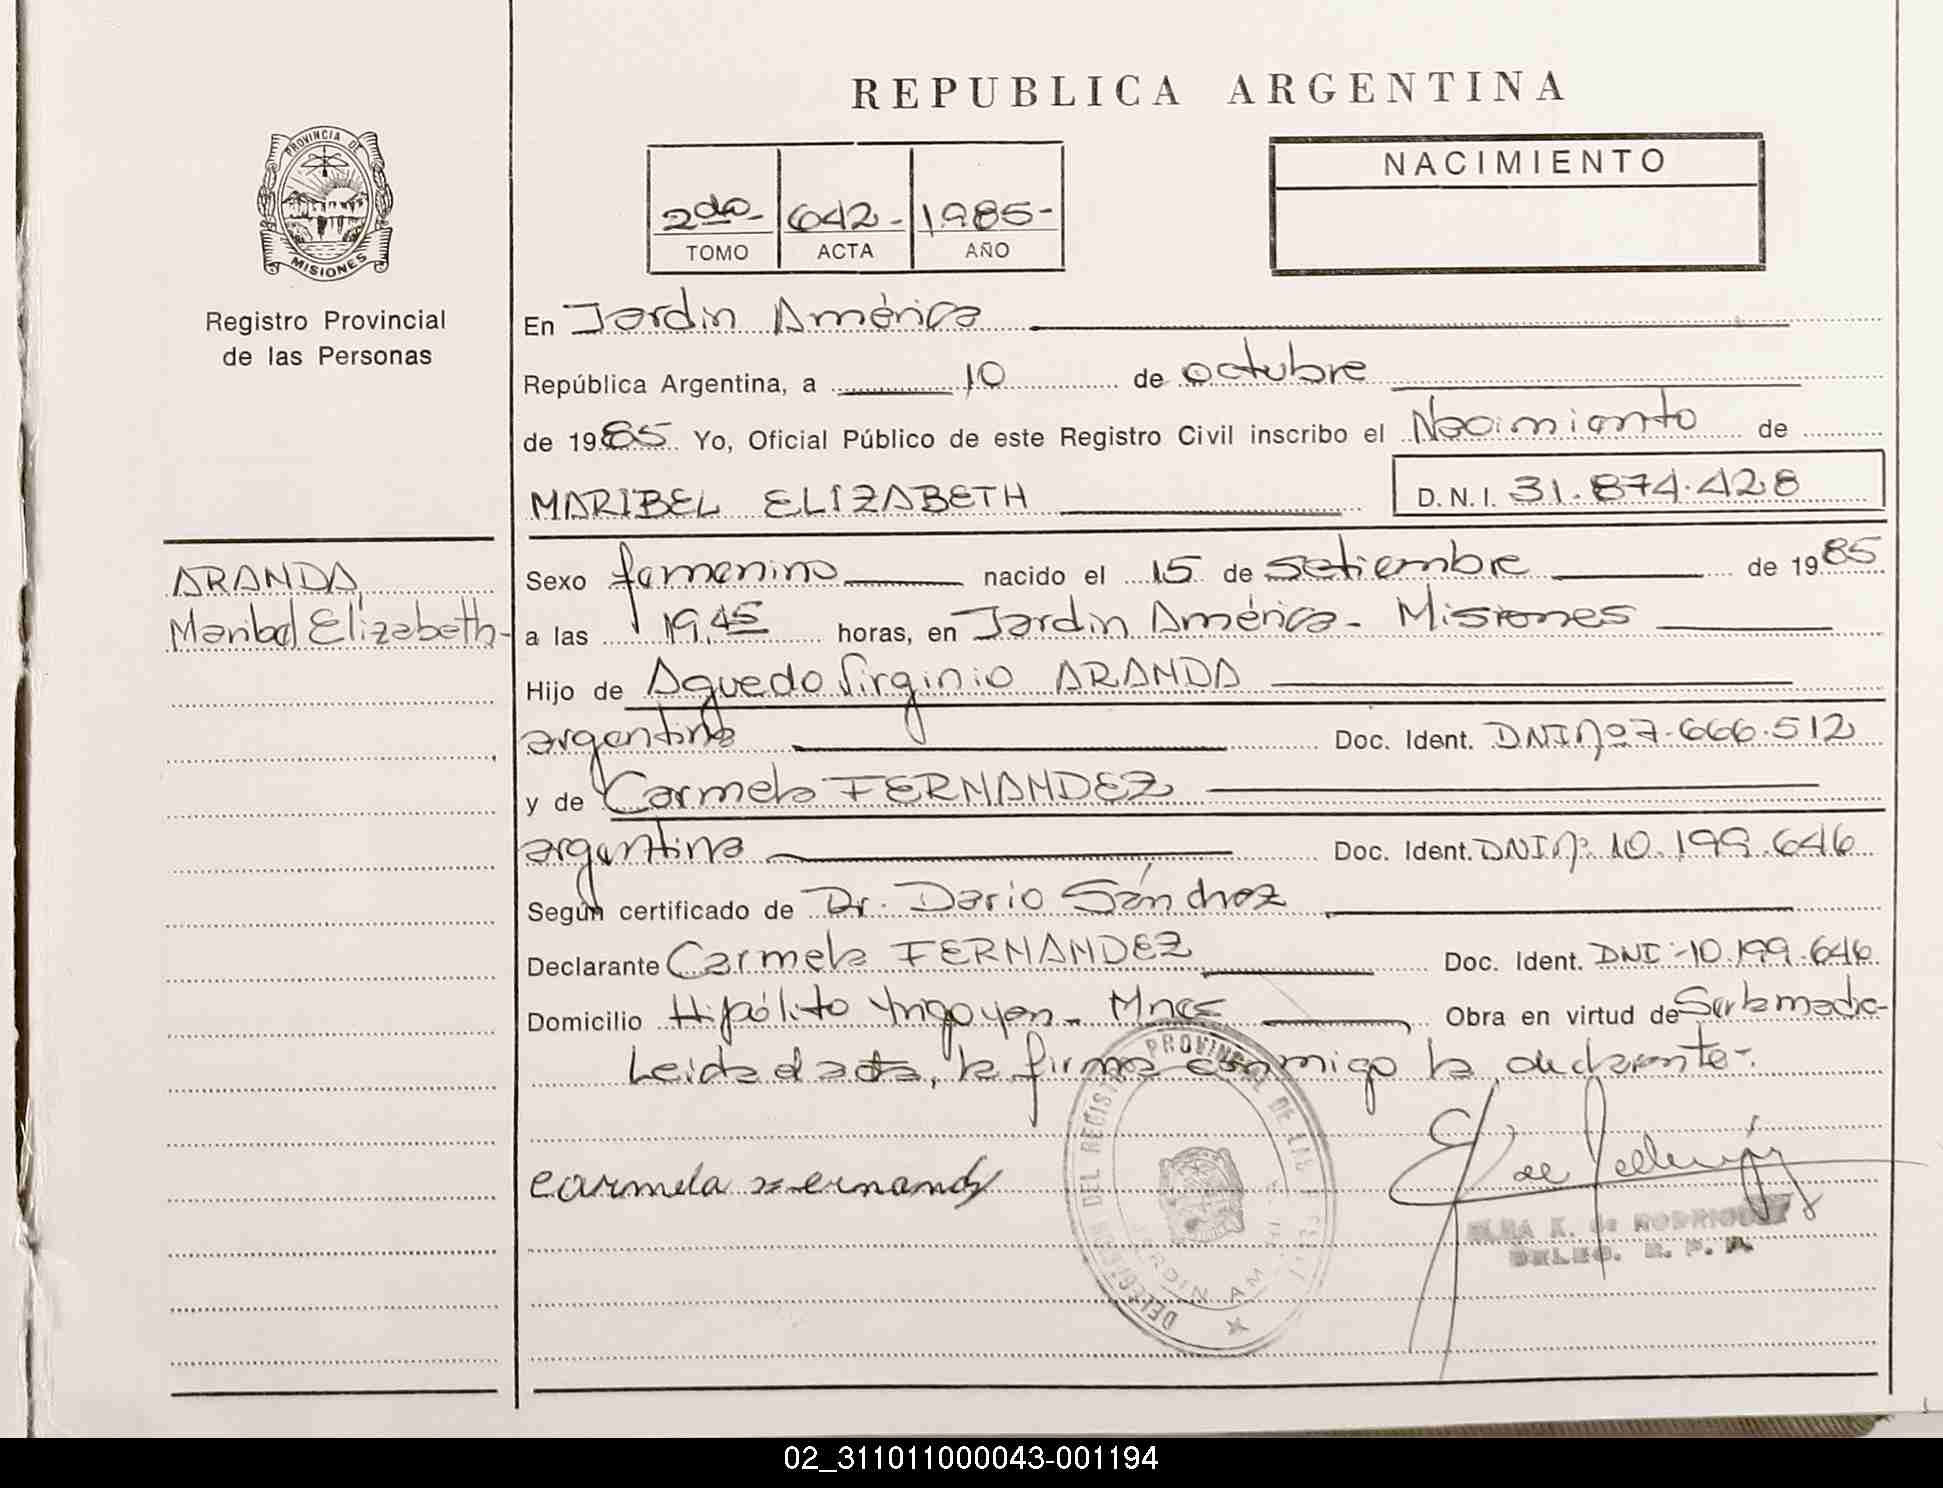 REPUBLICA ARGENTINA
PROVINCIA DE
MISIONES
Registro Provincial
de las Personas
2do - 642 - 1985 -
TOMO ACTA AÑO
NACIMIENTO
En Jardin América
República Argentina, a 10 de octubre
de 1985 Yo, Oficial Público de este Registro Civil inscribo el Nacimiento de
MARIBEL ELIZABETH D.N.I. 31.874.428
ARANDA,
Maribel Elizabeth-
Sexo femenino nacido el 15 de setiembre de 1985
a las 19,45 horas, en Jardin América - Misiones
Hijo de Aguedo Virginio ARANDA
argentina Doc. Ident. DNI nº 7.666.512
y de Carmela FERNANDEZ
argentina Doc. Ident. DNI nº 10.199.646
Según certificado de Dr. Dario Sánchez
Declarante Carmela FERNANDEZ Doc. Ident. DNI-10.199.646
Domicilio Hipólito Yrigoyen - Mnes Obra en virtud de Ser la madre-
Leida el acta, la firma conmigo la declarante-.
carmela Fernandez
DELEGACION DEL REGISTRO PROVINCIAL DE LAS
JARDIN AMERICA
ELBA K. de RODRIGUEZ
DELEG. R. P. P.
02_311011000043-001194